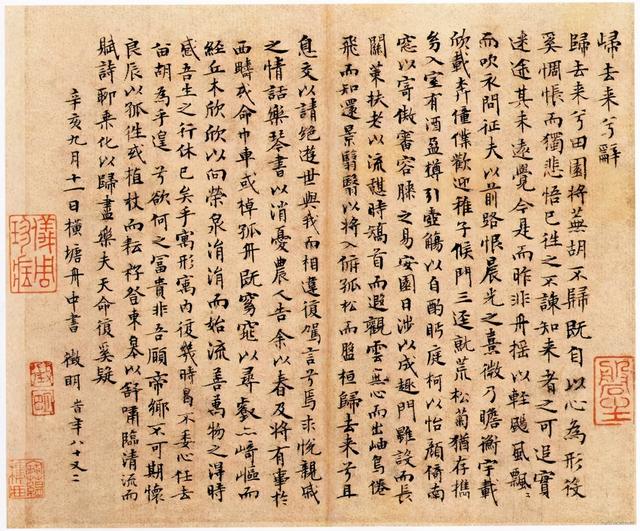 歸去来兮辭
歸去来兮田園將蕪胡不歸既自以心為形役
奚惆悵而獨悲悟已往之不諫知来者之可追實
迷途其未遠覺今是而昨非舟摇以輕颺風飄〻
而吹衣問征夫以前路恨晨光之熹微乃瞻衡宇載
欣載奔僮僕歡迎稚子候門三逕就荒松菊猶存攜
幼入室有酒盈樽引壺觴以自酌眄庭柯以怡顔倚南
窓以寄傲審容膝之易安園日涉以成趣門雖設而長
關策扶老以流憩時矯首而遐觀雲無心而出岫鳥倦
飛而知還景翳翳以將入撫孤松而盤桓歸去来兮且
息交以請絶遊世與我而相違復駕言兮焉求悅親戚
之情話樂琴書以消憂農人告余以春及將有事於
西疇或命巾車或棹孤舟既窈窕以尋壑亦崎嶇而
經丘木欣欣以向榮泉涓涓而始流善萬物之得時
感吾生之行休已矣乎寓形寓内復幾時曷不委心任去
留胡為乎遑〻兮欲何之富貴非吾願帝鄉不可期懷
良辰以孤往或植杖而耘耔登東皋以舒嘯臨清流而
賦詩聊乘化以歸盡樂夫天命復奚疑
辛亥九月十一日横塘舟中書 徵明 時年八十又二
儀周珍藏
徵明